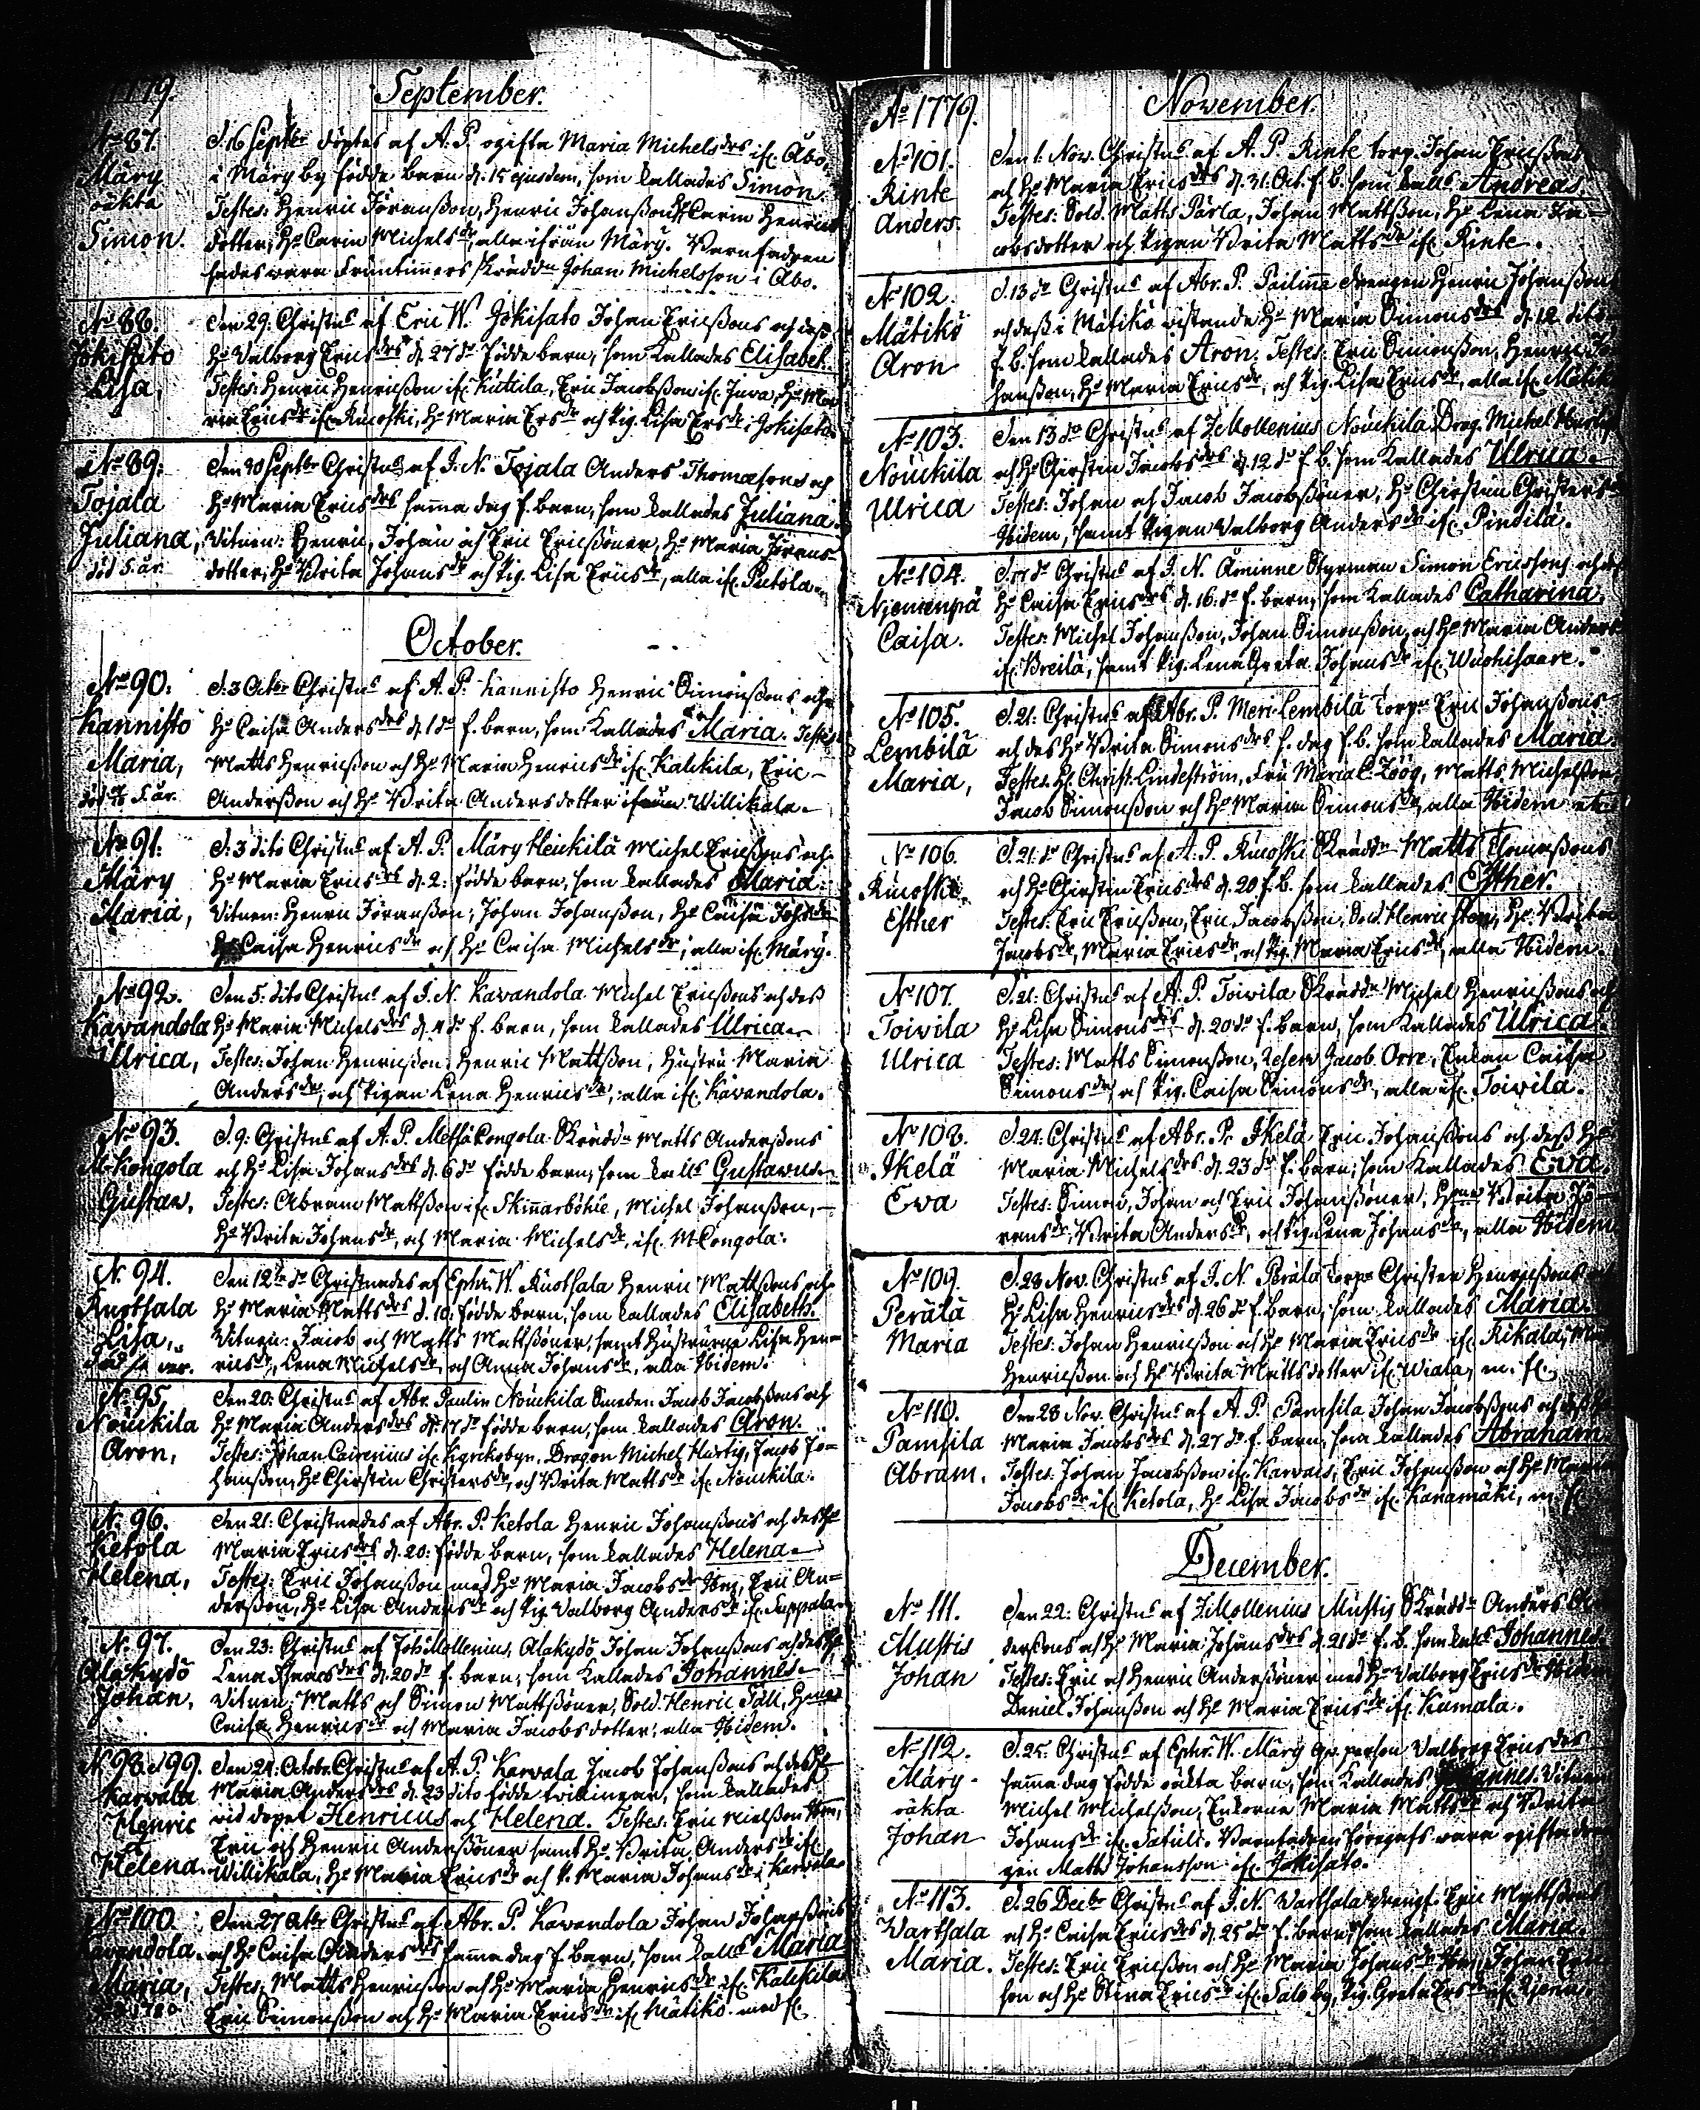 1779.
September.
No 87.
Märy
oäkta
Simon.
d. 16 Septbr döptes af A. P. ogifta Maria Michelsdrs ifr. Åbo,
i Märy by födde barn d. 15 ejusdem, som kallades Simon.
Testes: Henric Göransson, Henric Johansson, Hu Carin Henrics
dotter, Hu Carin Michelsdr, alla ifrån Märy. Barnfadren
sades vara Fruntimmers skräddn Johan Michelsson i Åbo.
No 88.
Jokisato
Lisa,
Den 29: Christns af Eric W. Jokisato Johan Ericssons och dess
Hu Valborg Ericsdrs d. 27 do födde barn, som kallades Elisabet.
Testes: Henric Henricsson ifr. Kuttila, Eric Jacobsson ifr. Juva, Hu Ma-
ria Ericsdr ifr. Ruoski, Hu Maria Ersdr och Pig. Lisa Ersdr i Jokisato.
No 89.
Tojala
Juliana,
död 5. år
Den 30 Septbr Christns af J. N. Tojala Anders Thomasons och
Hu Maria Ericsdrs samma dag f. barn, som kallades Juliana.
Vitnen: Henric, Johan och Eric Ericssöner, Hu Maria Jörans-
dotter, Hu Brita Johansdr och Pig. Lisa Ericsdr, alla ifr. Putola.
October.
No 90.
Kannisto
Maria,
d. 3 Octbr Christns af A. P. Kannisto Henric Simonssons och
Hu Caisa Andersdrs d. 1 do f. barn, som kallades Maria. Testes:
Matts Henricsson och Hu Maria Henricsdr ifr. Kalikila, Eric
Andersson och Hu Brita Andersdotter ifrån Willikala.
No 91.
Märy
Maria,
d. 3 dito Christns af A. P. Märy Heickilä Michel Ericssons och
Hu Maria Ericsdrs d. 2: födde barn, som kallades Maria:
Vitnen: Henric Jöransson, Johan Johansson, Hu Caisa Johsdr
Hu Caisa Henricsdr och Hu Caisa Michelsdr, alla ifr. Märy.
No 92.
Kavandola
Ulrica,
Den 5. dito Christns af J. N. Kavandola Michel Ericssons och dess
Hu Maria Michelsdrs d. 4 do f. barn, som kallades Ulrica
Testes: Johan Henricsson, Henric Mattsson, Hustru Maria
Andersdr, och Pigan Lena Henricsdr, alla ifr. Kavandola.
No 93.
M. Kongola
Gustav,
d. 9: Christns af A. P. Metsäkongola Skräddn Matts Anderssons
och Hu Lisa Johansdrs d. 6 do födde barn, som kallas Gustavus
Testes: Abram Mattsson ifr. Skinnarböhle, Michel Johansson,
Hu Brita Johansdr, och Maria Michelsdr, ifr. M. Congola.
N. 94.
Knotsala
Lisa,
Den 12te do Christnades af Ephr. W. Knotsala Henric Mattssons och
Hu Maria Mattsdrs d. 10. födde barn, som kallades Elisabeth.
Vitnen: Jacob och Matts Mattssöner, samt Hustrurna Lisa Hen-
ricsdr, Lena Michelsdr, och Anna Johansdr, alla Ibidem.
No 95,
Nouckila
Aron,
Den 20: Christns af Abr. Paulin Nouckila Smeden Jacob Jacobssons och
Hu Maria Andersdrs d. 17 do födde barn, som kallades Aron.
Testes: Johan Cairenius ifr. Kyrckobyn, Dragon Michel Hurtig, Jacob Jo-
hansson, Hu Chirstin Christersdr, och Brita Mattsdr ifr. Nouckila.
N. 96.
Ketola
Helena,
Den 21: Christnades af Abr. P. Ketola Henric Johanssons och dess Hu
Maria Ericsdrs d. 20: födde barn, som kallades Helena
Testes: Eric Johansson med Hu Maria Jacobsdr Ibm, Eric An-
dersson, Hu Lisa Andersdr och Pig Valborg Andersdr ifr. Suppala
N. 97.
Alakydö
Johan,
Den 23: Christns af Joh: Mollenius, Alakydö, Johan Johanssons och dess Hu
Lena Isaacsdrs d. 20 do f. barn, som kallades Johannes
Vitnen: Matts och Simon Mattssöner, Sold. Henric Tall,
Caisa Henricsdr och Maria Jacobsdotter, alla Ibidem.
N. 98. & 99.
Karvala
Henric
et
Helena.
Den 24: Octobr Christns af A. P. Karvala Jacob Johanssons och dess Hu
Maria Andersdrs d. 23 dito födde tvillingar, som kallades
vid dopet Henricus och Helena. Testes: Eric Nielsson Ibm,
Eric och Henric Anderssöner samt Hu Brita Andersdr ifr.
Willikala, Hu Maria Ericsdr och P. Maria Johansdr i Karvala
No 100.
Kavandola
Maria,
Den 27 Octbr Christns af Abr. P. Kavandola Johan Johanssons
och Hu Caisa Andersdrs samma dag f. barn, som kalls Maria
Testes: Matts Henricsson och Hu Maria Henricsdr ifr. Kalikila
Eric Simonsson och Hu Maria Ericsdr ifr. Mätikö. med fl.
Ao 1779.
November.
No 101.
Rinte
Anders.
Den 1. Nov. Christns af A. P. Rinte torp. Johan Ericssons
och Hu Maria Ericsdrs d. 31. Oct. f. b. som kalls Andreas.
Testes: Sold. Matts Pärla, Johan Mattsson, Hu Lena Ja-
cobsdotter och Pigan Brita Mattsdr ifr. Rinte.
No 102.
Mätikö
Aron
d. 13 do Christns af Abr. P. Drengen Henric Johanssons
och dess i Mätikö vistande Hu Maria Simonsdrs d. 12 dito
f. b. som kallades Aron. Testes: Eric Simonsson, Henric Jo-
hansson, Hu Maria Ericsdr, och Pig. Lisa Ericsdr, alla ifr. Mätikö
No 103.
Nouckila
Ulrica
Den 13 do Christns af J. Mollenius Nouckila Drag. Michel Hurtigs
och Hu Chirstin Jacobsdrs d. 12 do f. b. som kallades Ulrica.
Testes: Johan och Jacob Jacobssöner, Hu Chirstin Christersdr
Ibidem, samt Pigan Valborg Andersdr ifr. Pindilä.
No 104.
Niemenpä
Caisa.
d. 17 do Christns af J. N. Åminne Styrman Simon Ericssons och dess
Hu Caisa Ericsdrs d. 16. do f. barn, som kallades Catharina.
Testes: Michel Johansson, Johan Simonsson, och Hu Maria Anders
ifr. Breilä, samt Pig. Lena Greta Johansdr ifr. Wuohisaare.
No 105.
Lembilä
Maria,
d. 21: Christns af Abr. P. Meri-Lembilä Torp. Eric Johanssons
och des Hu Brita Simonsdrs s. dag f. b. som kallades Maria.
Testes: Hr Christ. Lindeström, Fru Maria C. Zöög, Matts Michelsson,
Jacob Simonsson och Hu Maria Simonsdr, alla Ibidem etc.
No 106.
Ruoski
Esther
d. 21. do Christns af A. P. Ruoski Skräddn Matts Tomassons
och Hu Chirstin Ericsdrs d. 20 f. b. som kallades Esther.
Testes: Eric Ericsson, Eric Jacobsson, Sold. Henric Sten, Hu Brita
Jacobsdr, Maria Ericsdr, och Pig. Maria Ericsdr, alla Ibidem.
No 107.
Toivila
Ulrica
d. 21. Christns af A. P. Toivila Skräddn Michel Henricssons och
Hu Lisa Simonsdrs d. 20 do f. barn, som kallades Ulrica.
Testes: Matts Simonsson, Jacob Orre, Enkan Caisa
Simonsdr, och Pig. Caisa Simonsdr, alla ifr. Toivila.
No 108.
Ikelä
Eva
d. 24: Christns af Abr. P. Ikelä Eric Johanssons och dess Hu
Maria Michelsdrs d. 23 do f. barn, som kallades Eva.
Testes: Simon, Johan och Eric Johanssöner, Brita Jö-
ransdr, Brita Andersdr, och Pig. Lena Johansdr, alla Ibidem
No 109.
Perälä
Maria
d. 28 Nov. Christns af J. N. Perälä Torp. Christer Henricssons
Hu Lisa Henricsdrs d. 26 do f. barn, som kallades Maria.
Testes: Johan Henricsson och Hu Maria Ericsdr ifr. Rikala,
Henricsson och Hu Brita Mattsdotter ifr. Wiala, m. fl.
No 110.
Pamsila
Abram.
Den 28 Nov. Christns af A. P. Pamsila Johan Jacobssons och dess Hu
Maria Jacobsdrs d. 27 do f. barn, som kallades Abraham.
Testes: Johan Jacobsson ifr. Karvais, Eric Johansson och Hu Maria
Jacobsdr ifr. Ketola, Hu Lisa Jacobsdr ifr. Kanamäki, m. fl.
December.
No 111.
Mustis
Johan
Den 22: Christns af J. Mollenius Mustis Skräddn Anders An-
derssons och Hu Maria Johansdrs d. 21 do f. b. som kalls Johannes.
Testes: Eric och Henric Anderssöner med Hu Valborg Ericsdr Ibidem
Daniel Johansson och Hu Maria Ericsdr ifr. Kumala.
No 112.
Märy
oäkta
Johan
d. 25: Christns af Ephr. W. Märy person Valborg Ericsdrs
samma dag födde oäkta barn, som kallades Johannes. Vitnen
Michel Michelsson, Enkorne Maria Mattsdr och Brita
Johansdr ifr. Satuli. Barnfadren föregafs vara ogifte dren-
gen Matts Johansson ifr. Jokisato.
No 113.
Vartsala
Maria.
d. 26 Decbr Christns af J. N. Vartsala Drengs Eric Mattssons
och Hu Caisa Ericsdrs d. 25 do f. barn, som kallades Maria.
Testes: Eric Ericsson och Hu Maria Johansdr Ibm, Johan Erics-
son och Hu Stina Ericsdr ifr. Saleby, Pig. Greta Ersdr ifr.